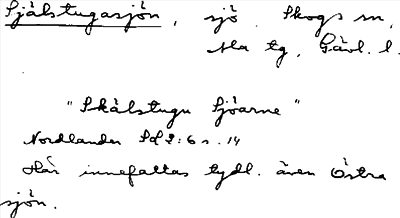 Själstugasjön, sjö. Skogs sn,
Ala tg, Gävl. l.
"Skälstugu Sjöarne"
Nordlander Sd 2:6 s. 14
Här innefattas tydl. även Östra
sjön.